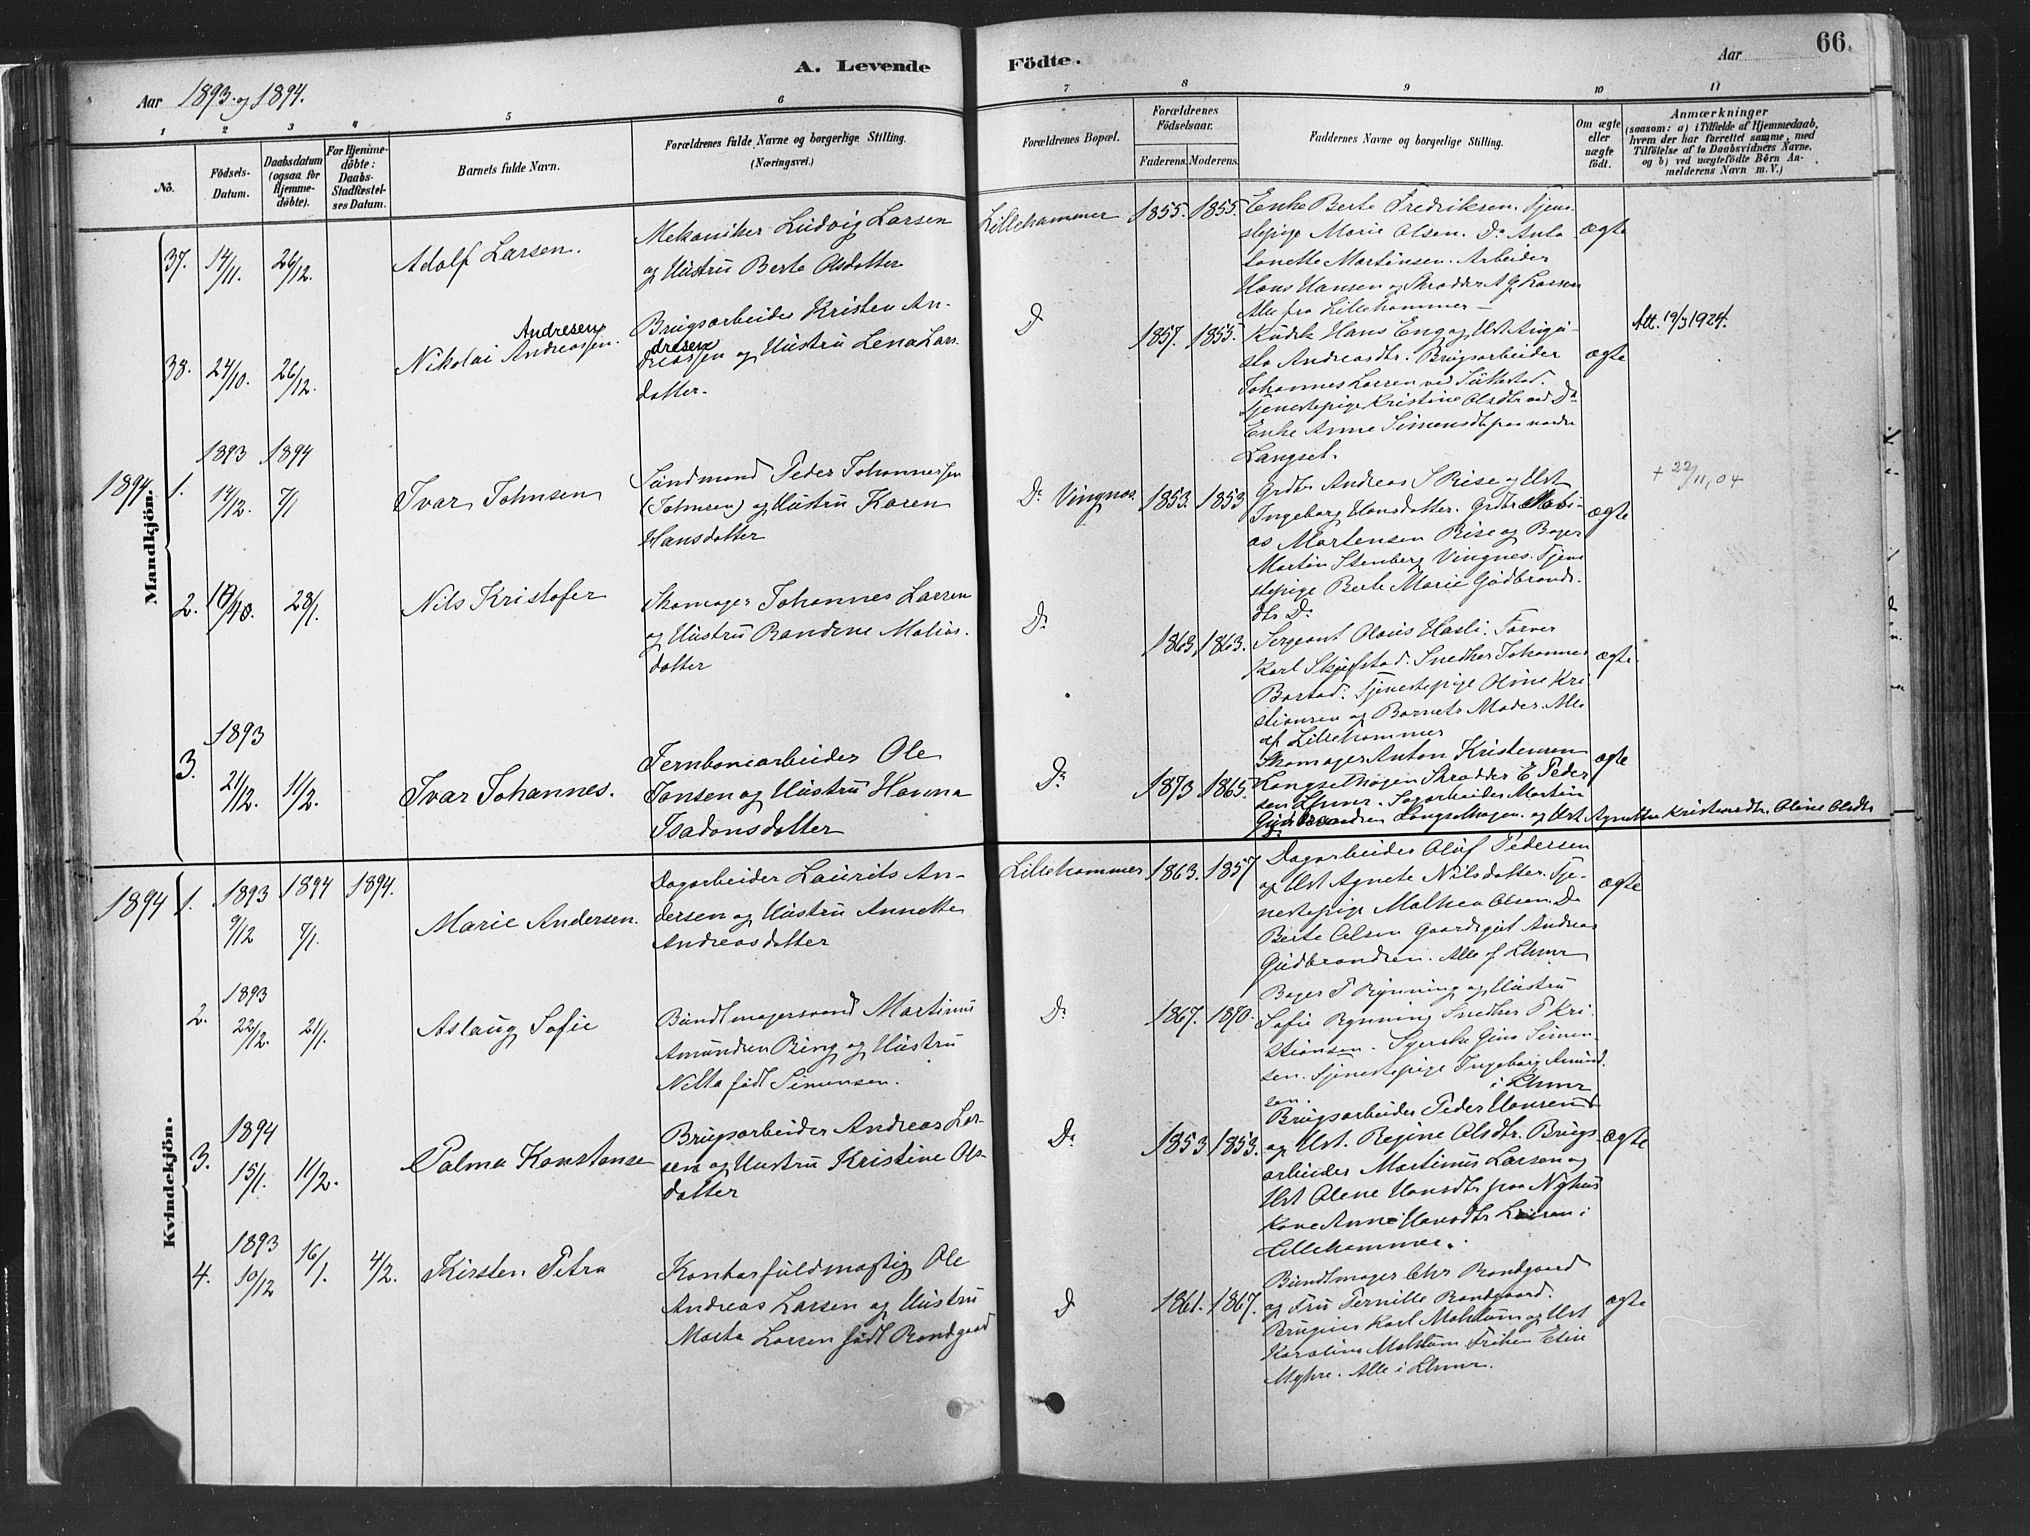 66.
A. Levende Födte.
Aar 1893. og 1894.
Aar
1 2 3 4 5 6 7 8 9 10 11
No.
Födsels-
Datum.
Daabsdatum
(ogsaa for
Hjemme-
döbte).
For Hjemme-
döbte:
Daabs-
Stadfæstel-
ses Datum.
Barnets fulde Navn.
Forældrenes fulde Navne og borgerlige Stilling.
(Næringsvei.)
Forældrenes Bopæl.
Forældrenes
Födselsaar.
Faderens. Moderens.
Faddernes Navne og borgerlige Stilling.
Om ægte
eller
uægte
födt.
Anmærkninger
(saasom: a) i Tilfælde af Hjemmedaab,
hvem der har forrettet samme, med
Tilföielse af to Daabsvidners Navne,
og b) ved uægtefödte Börn An-
melderens Navn m. V.)
Mandkjön.
37. 14/11. 26/12.
Adolf Larsen.
Mekaniker Ludvig Larsen
og Hustru Berte Olsdatter
Lillehammer
1855. 1855.
Enke Berte Fredriksen. Tjene-
stepige Marie Olsen. Do
Martinsen. Arbeider
Hans Hansen og Skrædder A G Larsen
Alle fra Lillehammer
ægte
38. 24/10. 26/12.
Andresen
Nikolai Andreassen.
Brugsarbeider Kristen An-
dresen
dreassen og Hustru Lena Lars-
datter.
Do
1857. 1855.
Kudsk Hans Eng og Hst
Andreasdtr. Brugsarbeider
Johannes Larsen ved
Tjenestepige Kristine Olsdtr ved Do
Enke Anne Simensdtr paa nordre
Langset.
ægte
Att. 19/3 1924.
1894
1. 1893 14/12. 1894 7/1
Ivar Johnsen
Sundmand Peder Johannessen
(Johnsen) og Hustru Karen
Hansdatter
Do Vingnes.
1853. 1853
Grdbr Andreas S Rise og Hst
Ingeborg Hansdatter. Grdbr Mathi-
as Martensen Rise og Bager
Martin Stenberg Vingnes. Tjene-
stepige Berte Marie Gudbrands-
dtr Do
ægte
+ 22/11, 04
2. 28/1.
Nils Kristofer
Skomager Johannes Larsen
og Hustru Randine Matias-
datter
Do
1863 1863.
Sergeant Olaus Hasli. Farver
Karl Skjefstad. Snedker Johannes
Borstad. Tjenestepige Oline Kri-
stiansen og Barnets Moder. Alle
af Lillehammer
ægte
3. 1893 21/12. 11/2.
Ivar Johannes.
Jernbanearbeider Ole
Jonsen og Hustru Hanna
Isadonsdatter
Do
1873 1865.
Skomager Anton Kristensen
Langsethagen Skrædder E Peder-
sen Lhmr. Sagarbeider Martin
Gudbrandsen Langsethagen. og Hst Agnethe Kristiansdtr. Oline Olsdtr
Do
ægte
Kvindekjön.
1894
1. 1893 9/12 1894 7/1. 1894.
Marie Andersen.
Dagarbeider Laurits An-
dersen og Hustru Annette
Andreasdatter
Lillehammer
1863. 1857
Dagarbeider Oluf Pedersen
og Hst Agnete Nilsdatter. Tje-
nestepige Mathea Olsen. Do
Berte Olsen Gaardsgut Andreas
Gudbrandsen. Alle af Lhmr
ægte
2. 1893 22/12. 21/1.
Aslaug Sofie
Bundtmagersvend Martinus
Amundsen Ring og Hustru
Nilla født Simensen.
Do
1867. 1870.
Bager P Rynning og Hustru
Sofie Rynning Snedker P Kri-
stiansen. Syerske Gina Simen-
sen. Tjenestepige Ingeborg Amund-
sen. i Lhmr
3. 1894 15/1. 11/2.
Palma Konstanse
Brugsarbeider Andreas Lar-
sen og Hustru Kristine Ols-
datter
Do
1853 1853.
Brugsarbeider Peder Hansen
og Hst. Regine Olsdtr. Brugs-
arbeider Martinus Larsen og
Hst Olene Hansdtr paa Nyhus
Kone Anne Hansdtr Larsen i
Lillehammer.
ægte
4. 1893 10/12 16/1. 4/2.
Kirsten Petra
Kontorfuldmægtig Ole
Andreas Larsen og Hustru
Marta Larsen født Randgaard
Do
1861. 1867.
Bundtmager Chr Randgaard
og Fru Pernille Randgaard.
Brugseier Karl Mohstum og Hst
Karoline Mohstum Frøken Elise
Myhre. Alle i Lhmr.
ægte